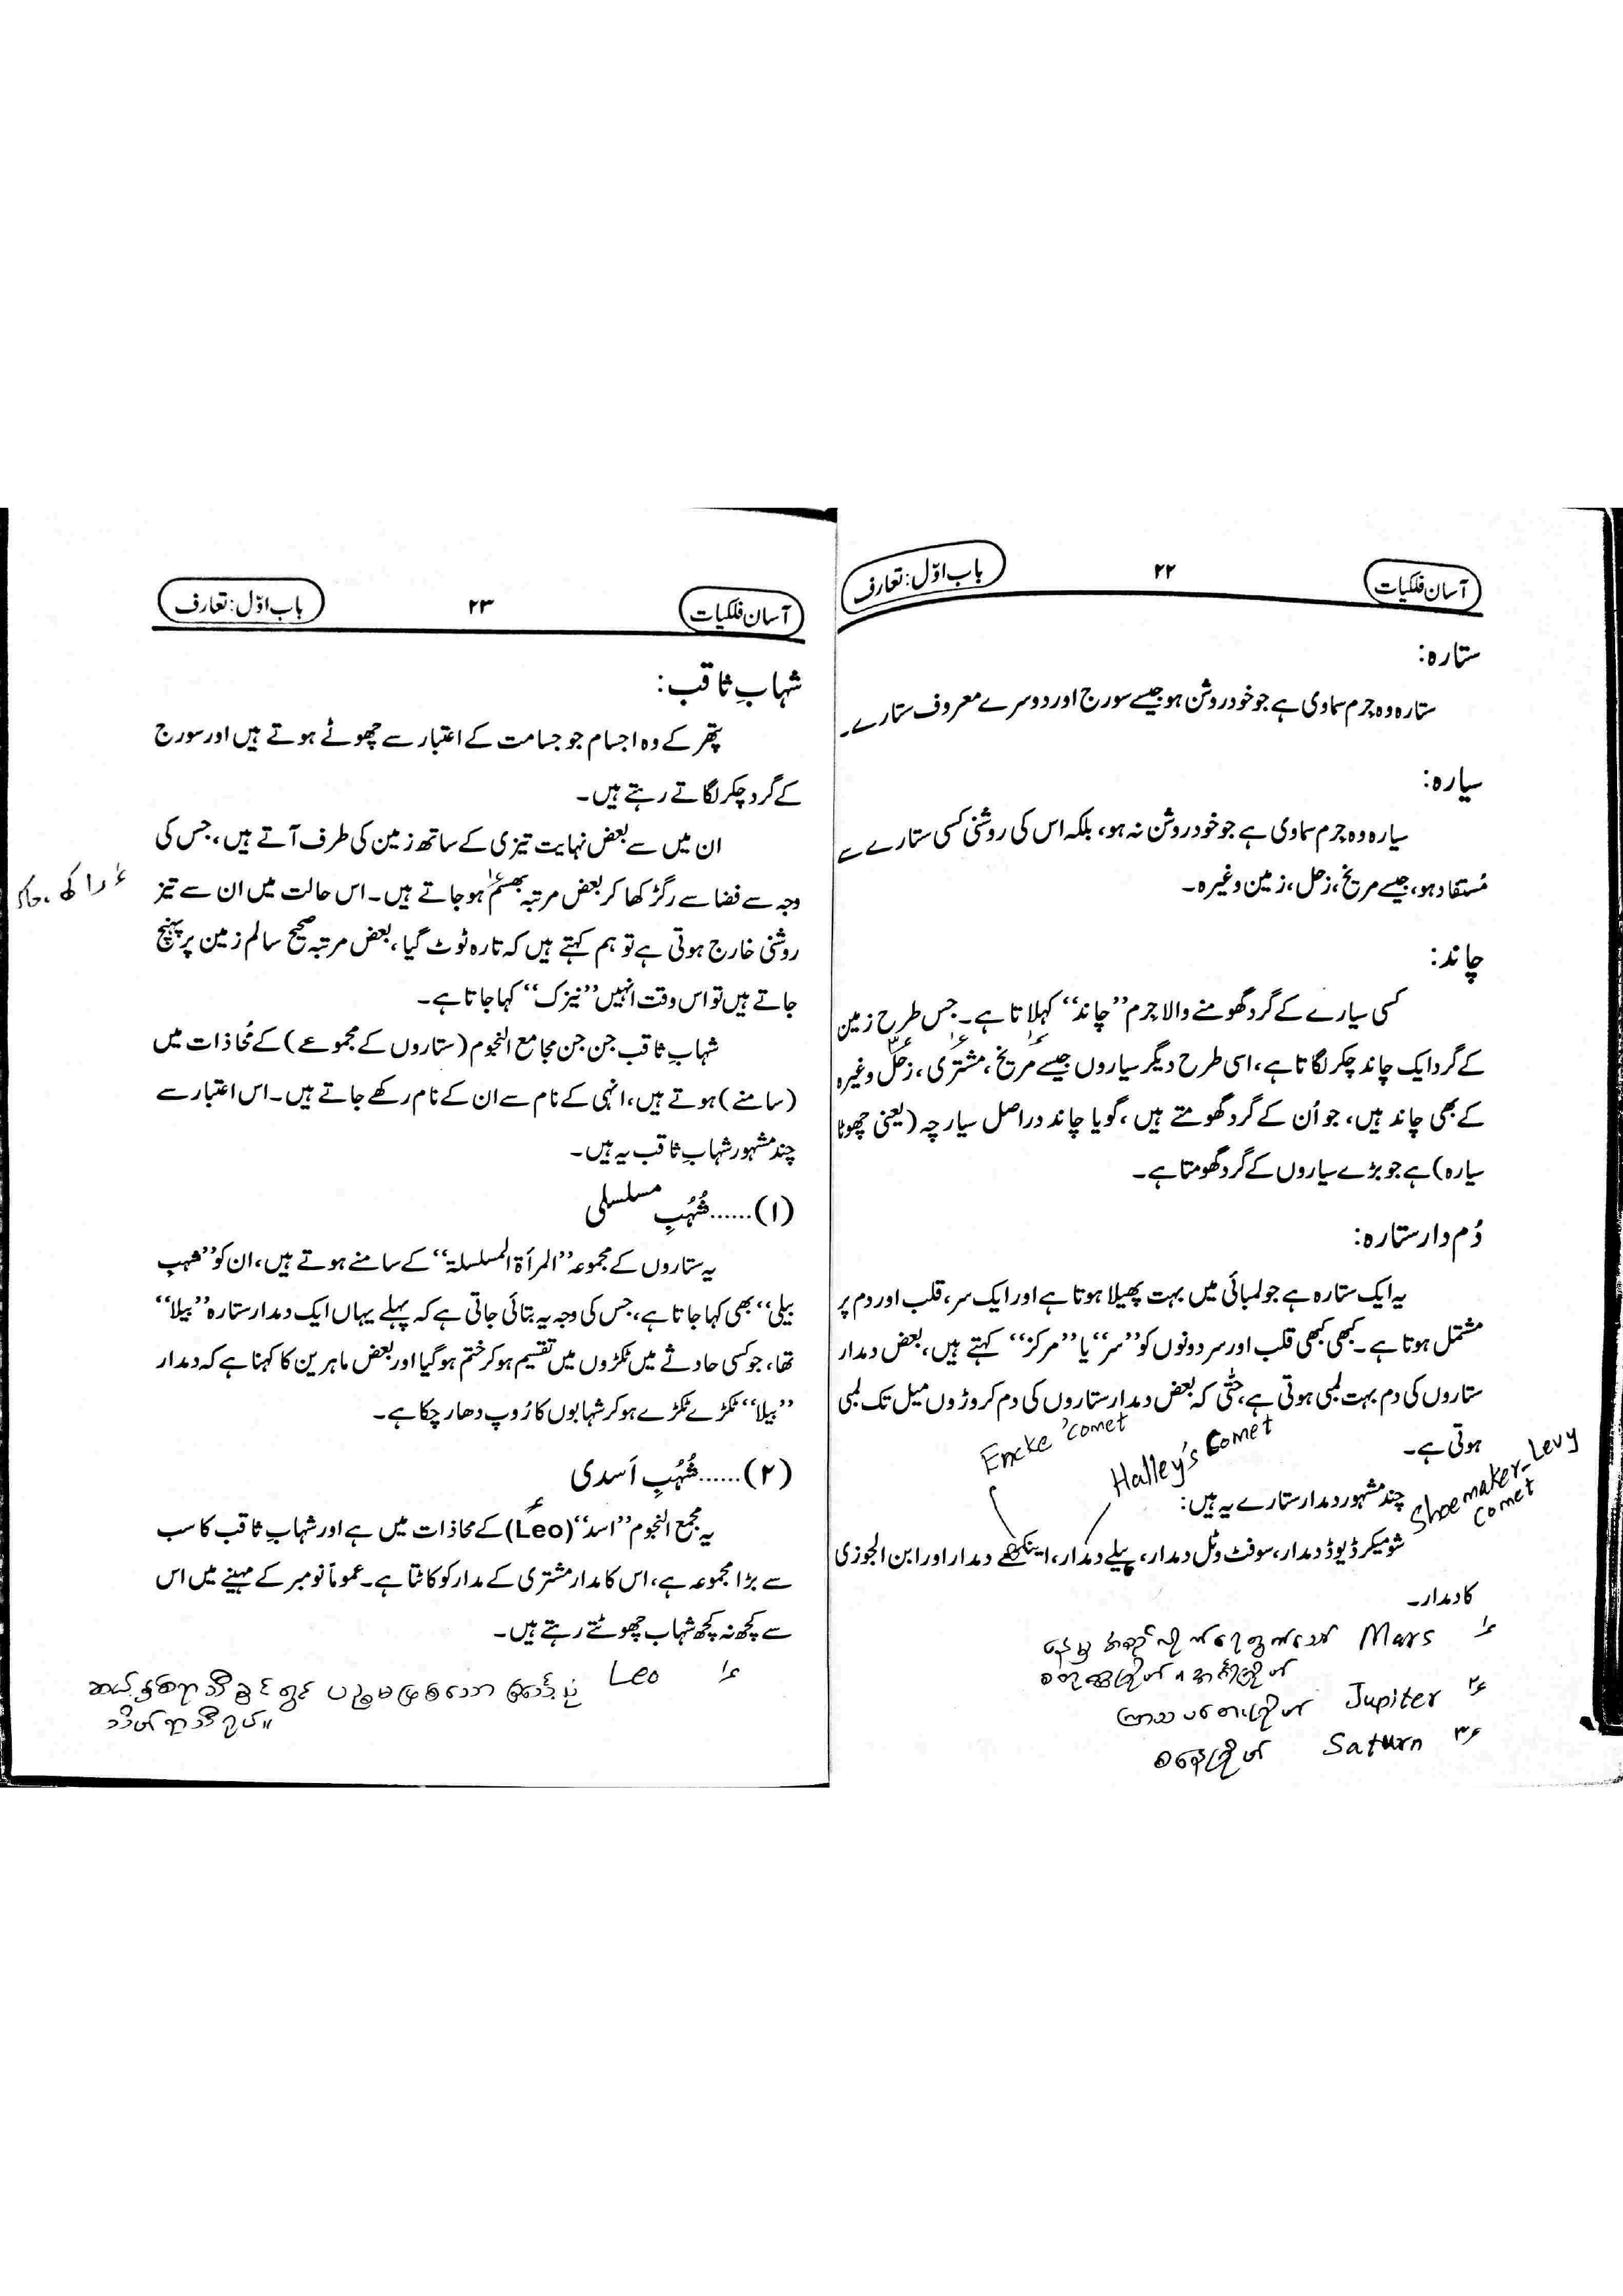 آسان فلکیات ۲۲ باب اوّل: تعارف
ستارہ:
ستارہ وہ جرم سماوی ہے جو خود روشن ہو جیسے سورج اور دوسرے معروف ستارے۔
سیارہ:
سیارہ وہ جرم سماوی ہے جو خود روشن نہ ہو، بلکہ اس کی روشنی کسی ستارے سے
مُستفاد ہو، جیسے مریخ، زحل، زمین وغیرہ۔
چاند:
کسی سیارے کے گرد گھومنے والا جرم ’’چاند‘‘ کہلاتا ہے۔ جس طرح زمین
کے گرد ایک چاند چکر لگاتا ہے، اسی طرح دیگر سیاروں جیسے مریخ، مشتری، زحل وغیرہ
کے بھی چاند ہیں، جو اُن کے گرد گھومتے ہیں، گویا چاند دراصل سیارچہ (یعنی چھوٹا
سیارہ) ہے جو بڑے سیاروں کے گرد گھومتا ہے۔
دُم دار ستارہ:
یہ ایک ستارہ ہے جو لمبائی میں بہت پھیلا ہوتا ہے اور ایک سر، قلب اور دم پر
مشتمل ہوتا ہے۔ کبھی کبھی قلب اور سر دونوں کو ’’سر‘‘ یا ’’مرکز‘‘ کہتے ہیں، بعض دمدار
ستاروں کی دم بہت لمبی ہوتی ہے، حتّٰی کہ بعض دمدار ستاروں کی دم کروڑوں میل تک لمبی
ہوتی ہے۔
Encke 'comet
Halley's Comet
Shoemaker-Levy
comet
چند مشہور دمدار ستارے یہ ہیں:
شومیکر ڈیوڈ دمدار، سوفٹ وٹل دمدار، ہیلے دمدار، اینکے دمدار اور ابن الجوزی
کا دمدار۔
۱؎ Mars
۲؎ Jupiter ကြာသပတေးဂြိုဟ်
۳؎ Saturn စနေဂြိုဟ်
آسان فلکیات ۲۳ باب اوّل: تعارف
شہابِ ثاقب:
پتھر کے وہ اجسام جو جسامت کے اعتبار سے چھوٹے ہوتے ہیں اور سورج
کے گرد چکر لگاتے رہتے ہیں۔
ان میں سے بعض نہایت تیزی کے ساتھ زمین کی طرف آتے ہیں، جس کی
وجہ سے فضا سے رگڑ کھا کر بعض مرتبہ بھسم ہو جاتے ہیں۔ اس حالت میں ان سے تیز
راکھ
روشنی خارج ہوتی ہے تو ہم کہتے ہیں کہ تارہ ٹوٹ گیا، بعض مرتبہ صحیح سالم زمین پر پہنچ
جاتے ہیں تو اس وقت انہیں ’’نیزک‘‘ کہا جاتا ہے۔
شہابِ ثاقب جن جن مجامع النجوم (ستاروں کے مجموعے) کے مُحاذات میں
(سامنے) ہوتے ہیں، انہی کے نام سے ان کے نام رکھے جاتے ہیں۔ اس اعتبار سے
چند مشہور شہابِ ثاقب یہ ہیں۔
(۱)......شُہُبِ مسلسلی
یہ ستاروں کے مجموعہ ’’المرأۃ المسلسلۃ‘‘ کے سامنے ہوتے ہیں، ان کو ’’شہبِ
بیلی‘‘ بھی کہا جاتا ہے، جس کی وجہ یہ بتائی جاتی ہے کہ پہلے یہاں ایک دمدار ستارہ ’’بیلا‘‘
تھا، جو کسی حادثے میں ٹکڑوں میں تقسیم ہو کر ختم ہو گیا اور بعض ماہرین کا کہنا ہے کہ دمدار
’’بیلا‘‘ ٹکڑے ٹکڑے ہو کر شہابوں کا رُوپ دھار چکا ہے۔
(۲)......شُہُبِ اَسدی
یہ مجمع النجوم ’’اسد‘‘ (Leo) کے محاذات میں ہے اور شہابِ ثاقب کا سب
سے بڑا مجموعہ ہے، اس کا مدار مشتری کے مدار کو کاٹتا ہے۔ عموماً نومبر کے مہینے میں اس
سے کچھ نہ کچھ شہاب چھوٹتے رہتے ہیں۔
۱؎ Leo ဆယ့်နှစ်ရာသီခွင်တွင် ပဉ္စမမြောက်သော
သိဟ်ရာသီရုပ်။